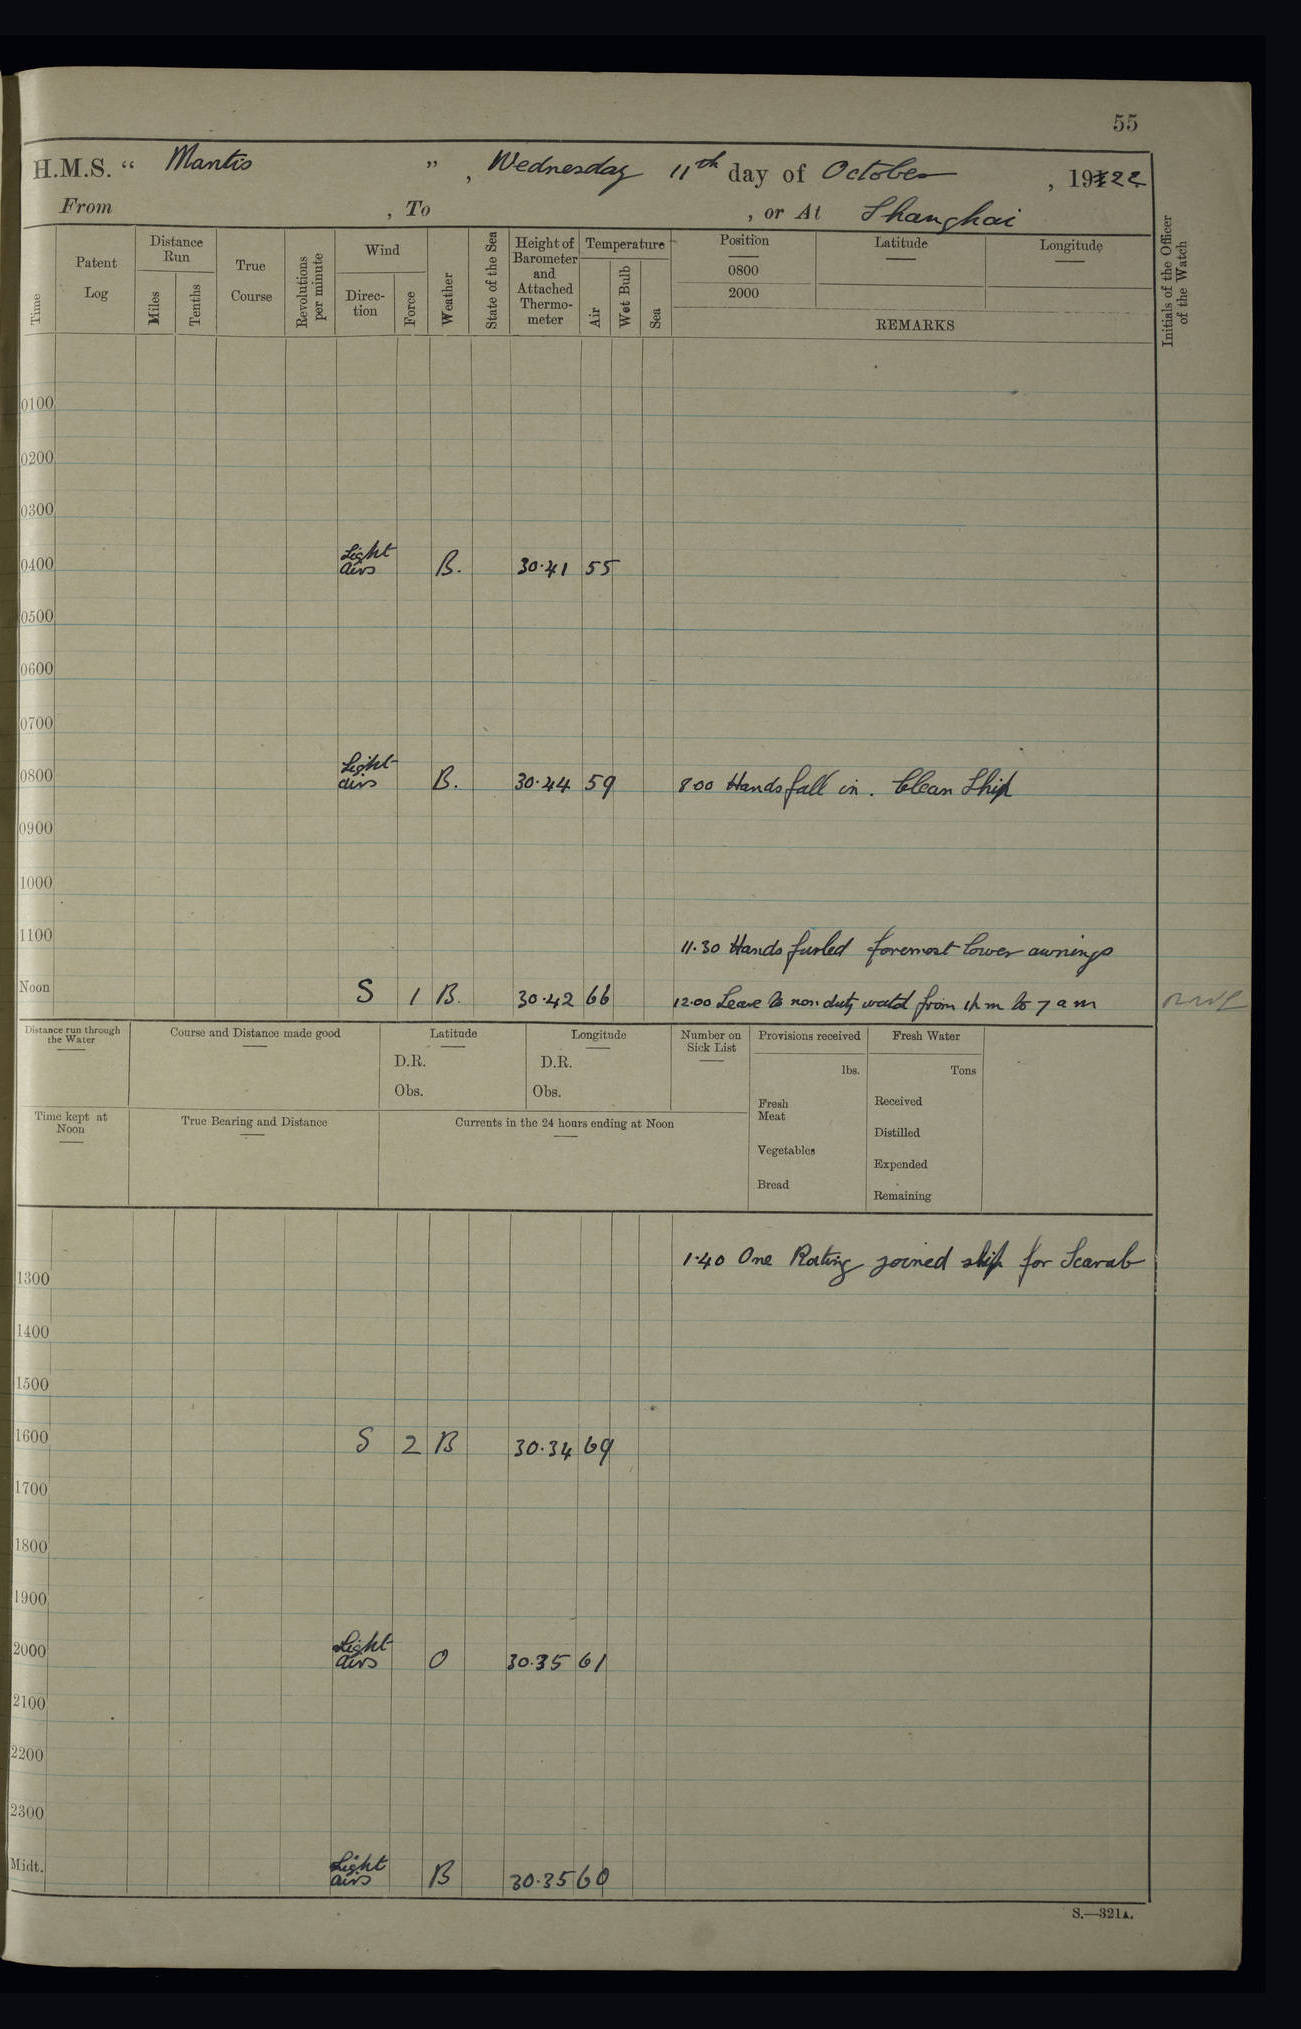 55
H.M.S. “ Mantis ” , Wednesday 11th day of October , 1922
From , To , or At Shanghai
Time
Patent Log
Distance Run
Miles
Tenths
True Course
Revolutions per minute
Wind
Direc-tion
Force
Weather
State of the Sea
Height of Barometer and Attached Thermo-meter
Temperature
Air
Wet Bulb
Sea
Position
Latitude
Longitude
0800
2000
REMARKS
Initials of the Officer of the Watch
0100
0200
0300
0400 Light airs B. 30.41 55
0500
0600
0700
0800 Light airs B. 30.44 59 8.00 Hands fall in. Clean Ship
0900
1000
1100
11.30 Hands furled foremost lower awnings
Noon S 1 B. 30.42 66 12.00 Leave to non duty watch from 1 p m to 7 a m
Distance run through the Water
Course and Distance made good
Latitude
D.R.
Obs.
Longitude
D.R.
Obs.
Number on Sick List
Provisions received
lbs.
Fresh Meat
Vegetables
Bread
Fresh Water
Tons
Received
Distilled
Expended
Remaining
Time kept at Noon
True Bearing and Distance
Currents in the 24 hours ending at Noon
1.40 One Rating joined ship for Scarab
1300
1400
1500
1600 S 2 B 30.34 69
1700
1800
1900
2000 Light airs O 30.35 61
2100
2200
2300
Midt. Light airs B 30.35 60
S.—321A.